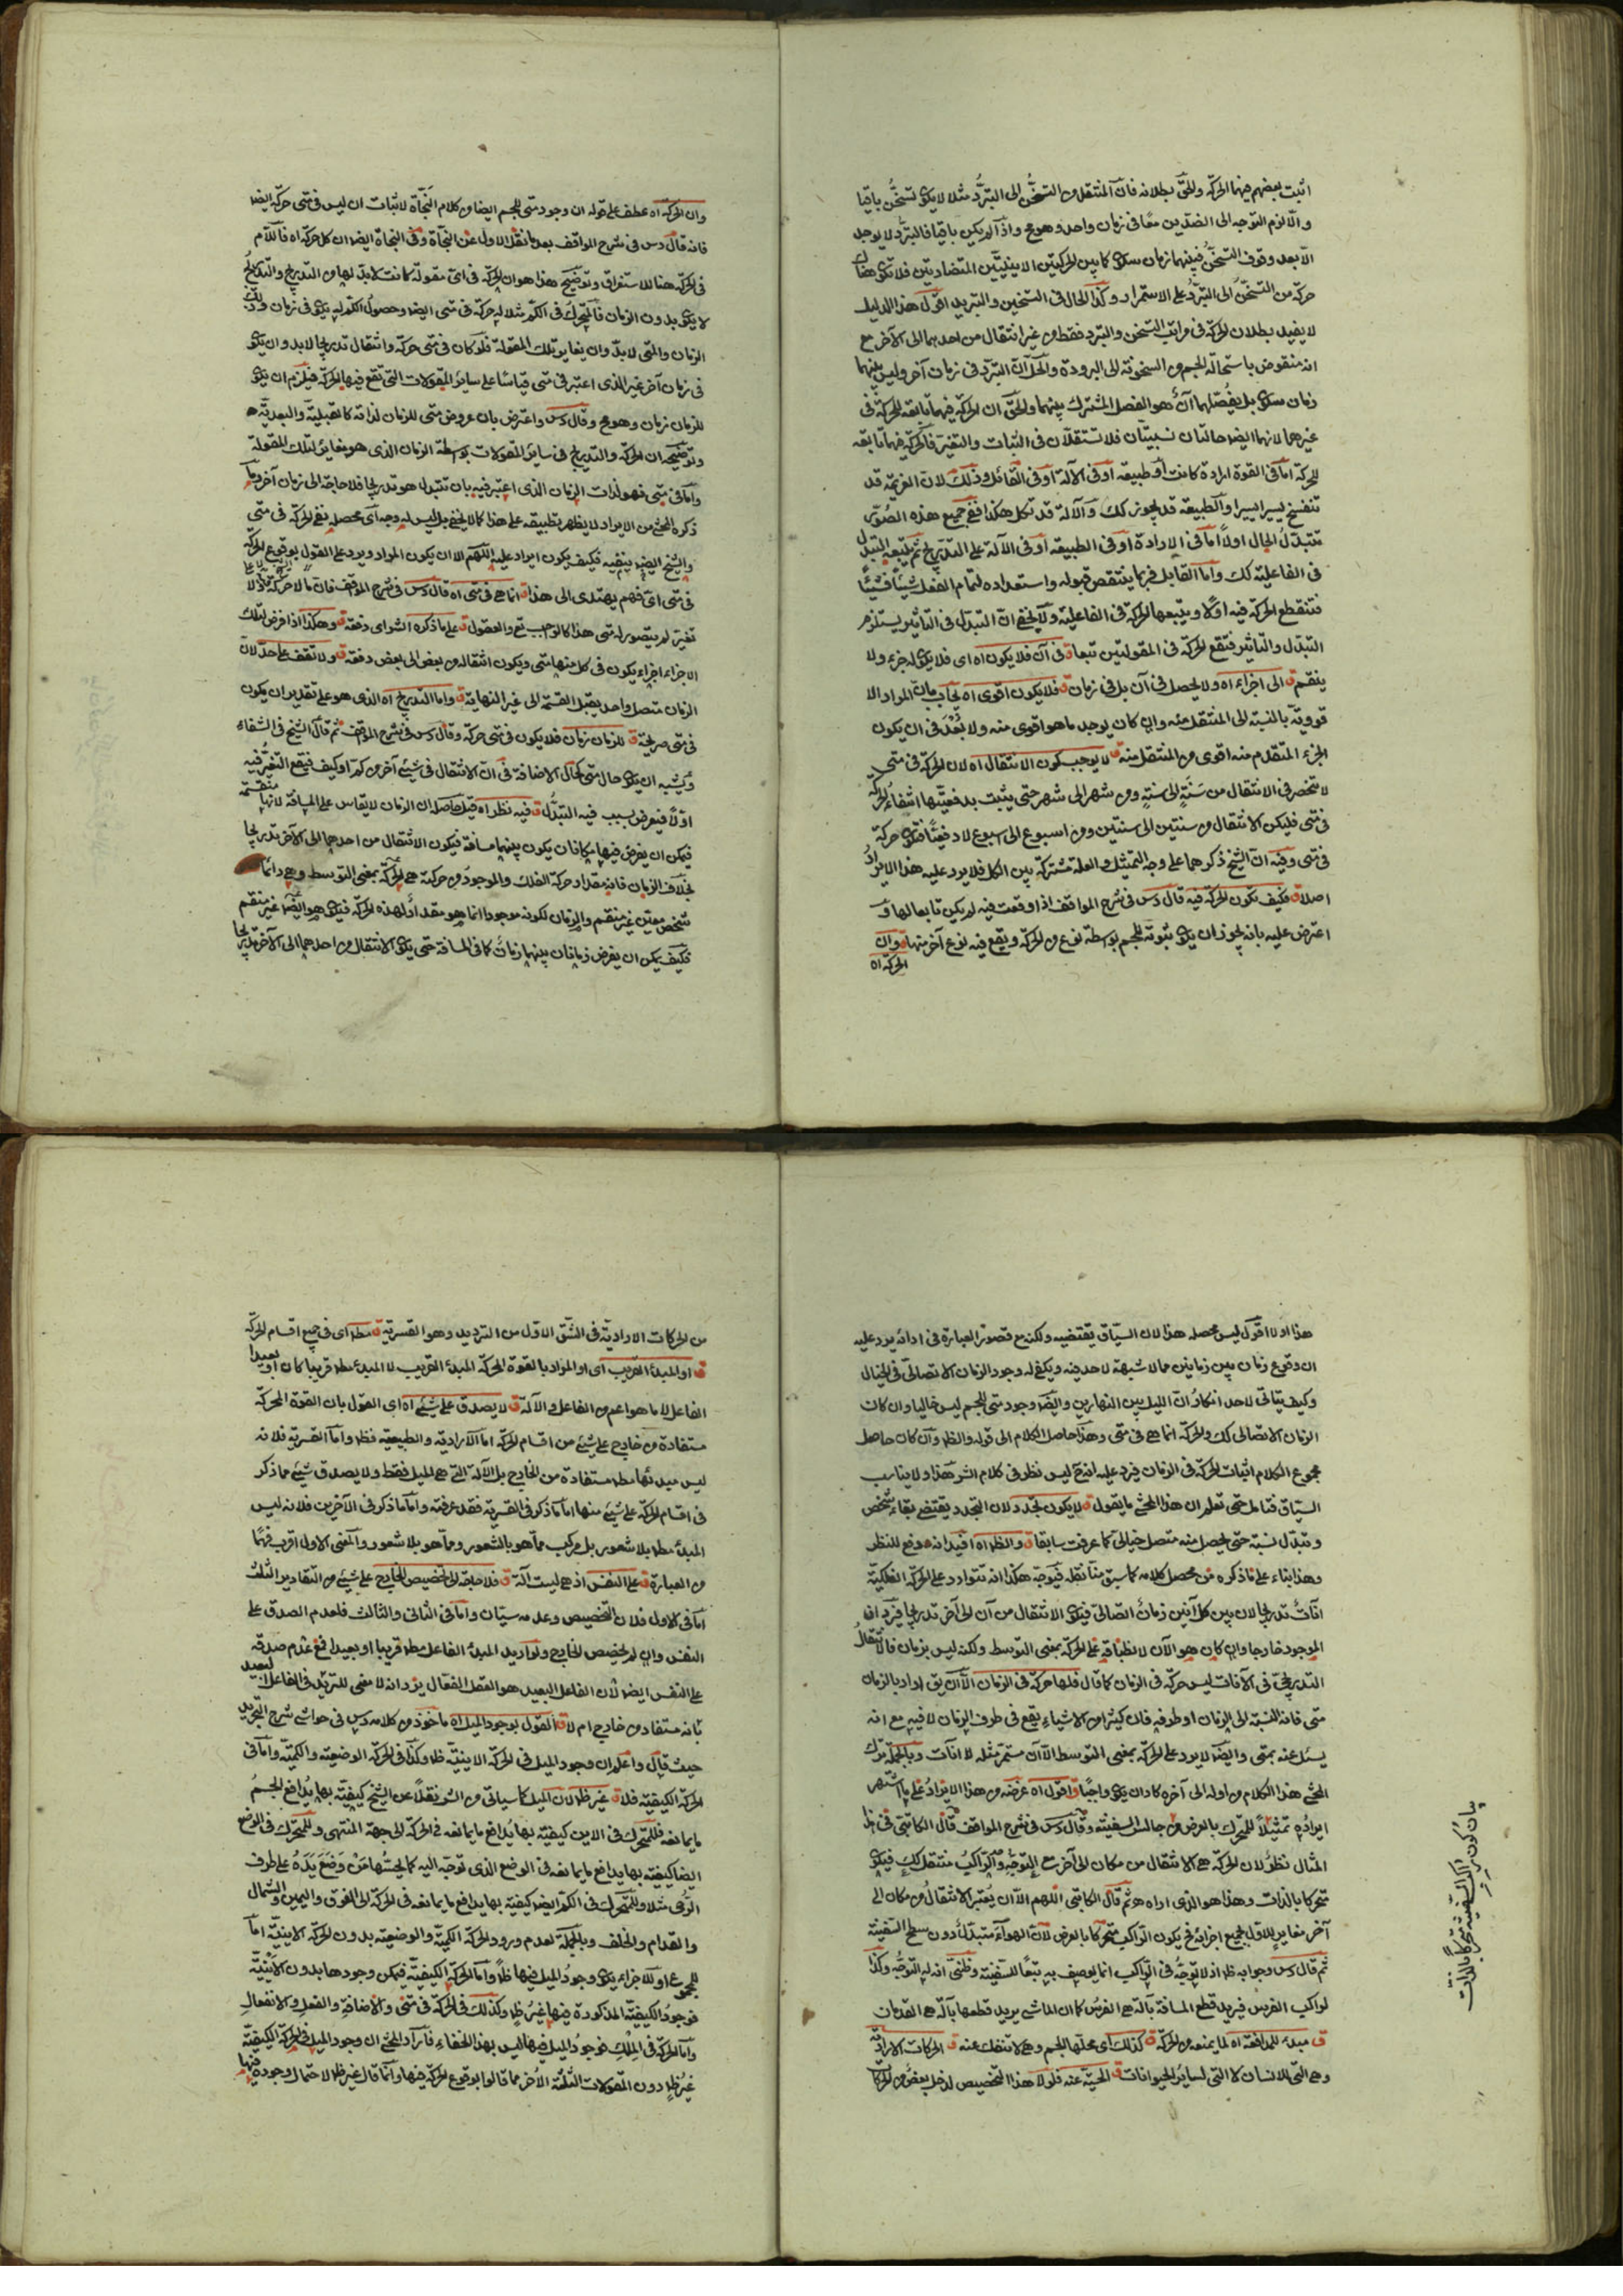 اثبت بعضهم فيهما الحركة والحق بطلانه فان المنتقل من التسخن الى التبرد مثلا لا يكون تسخنه باقيا
والا لزم التوجه الى الضدين معا فى زمان واحد وهو مح واذا لم يكن باقيا فالتبرد لا يوجد
الا بعد وقوف التسخن فبينهما زمان سكون كما بين الحركتين الاينيتين المتضادتين فلا تكون هناك
حركة من التسخن الى التبرد على الاستمرار وكذا الحال فى التسخين والتبريد اقول هذا الدليل
لا يفيد بطلان الحركة فى مراتب التسخن والتبرد فقط من غير انتقال من احدهما الى الآخر مع
انه منقوض باستحالة الجسم من السخونة الى البرودة والحل ان التبرد فى زمان آخر وليس بينهما
زمان سكون بل يفصلهما آن هو الفصل المشترك بينهما والحق ان الحركة فيهما تابعة للحركة فى
غيرهما لانهما ايضا حالتان نسبيتان فلا تستقلان فى الثبات والتغير فالحركة فيهما تابعة
للحركة اما فى القوة ارادة كانت او طبيعة او فى الآلة او فى القابل وذلك لان العزيمة قد
تنفسخ يسيرا يسيرا والطبيعة قد تخور كك والآلة قد تكل هكذا ففى جميع هذه الصور
تتبدل الحال اولا اما فى الارادة او فى الطبيعة او فى الآلة على التدريج ثم يتبعه التبدل
فى الفاعلية كك واما القابل فربما ينتقص قبوله واستعداده لتمام الفعل شيئا فشيئا
فتقطع الحركة فيه اولا ويتبعها الحركة فى الفاعلية ولا يخفى ان التبدل فى التأثير يستلزم
التبدل والتأثر فتقع الحركة فى المقولتين تبعا ق فى آن فلا يكون اه اى فلا يكون له جزء ولا
ينقسم ق الى اجزاء اه ولا يحصل فى آن بل فى زمان ق فلا يكون اقوى اه يجاب بان المراد الا
قووية بالنسبة الى المنتقل منه وان كان يوجد ما هو اقوى منه ولا بعد فى ان يكون
الجزء المتقدم منه اقوى من المنتقل منه ق لا يوجب كون الانتقال اه لان الحركة فى متى
لا تنحصر فى الانتقال من سنة الى سنة ومن شهر الى شهر حتى يثبت بدفعيتها انتفاء الحركة
فى متى فليكن الانتقال من سنتين الى سنتين ومن اسبوع الى اسبوع لا دفعيا فتكون حركة
فى متى وفيه ان الشيخ ذكرهما على وجه التمثيل والعلة مشتركة بين الكل فلا يرد عليه هذا الايراد
اصلا ق فكيف تكون الحركة فيه قال دس فى شرح المواقف اذا وقعت فيه لم يكن تابعا لها و
اعترض عليه بانه يجوز ان يكون ثبوته للجسم بواسطة نوع من الحركة ويقع فيه نوع آخر منها ق وان
الحركة اه
وان الحركة اه عطف على قوله ان وجود متى للجسم ايضا من كلام النجاة لاثبات ان ليس فى متى حركة ايضا
فانه قال دس فى شرح المواقف بعد ما نقل الاول عن النجاة وفى النجاة ايضا ان كل حركة اه فاللام
فى الحركة هنا للاستغراق وتوضيح هذا هو ان الحركة فى اى مقولة كانت لا بد لها من التدريج والتدريج
لا يكون بدون الزمان فالمتحرك فى الكم مثلا له حركة فى متى ايضا وحصول الكم له يكون فى زمان وذلك
الزمان والمتى لا بد وان يغاير تلك المقولة فلو كان فى متى حركة وانتقال تدريجا لا بد وان يكون
فى زمان آخر غير الذى اعتبر فى متى قياسا على سائر المقولات التى تقع فيها الحركة فيلزم ان يكون
للزمان زمان وهو مح وقال دس واعترض بان عروض متى للزمان لذاته كالقبلية والبعدية
وتوضيحه ان الحركة والتدريج فى سائر المقولات بواسطة الزمان الذى هو مغاير لتلك المقولة
واما فى متى فهو لذات الزمان الذى اعتبر فيه بان تتبدل هو تدريجا فلا حاجة الى زمان آخر وما
ذكره المحشى من الايراد لا يظهر تطبيقه على هذا كما لا يخفى بل ليس له وجه اى محصله نفى الحركة فى متى
والشيخ ايضا ينفيه فكيف يكون ايراد عليه اللهم الا ان يكون المراد ويرد على القول بوقوع الحركة
فى متى اى فهم يهتدى الى هذا ق انما هى فى متى اه قال دس فى شرح المواقف فان ما لا حركة فيه ولا
تغير لم يتصور له متى هذا كالواجب تع والعقول ق على ما ذكره الش اى دفعة ق وهكذا اذا فرض لتلك
الاجزاء اجزاء يكون فى كل منها متى ويكون انتقاله من بعض الى بعض دفعة ق ولا تقف على حد لان
الزمان متصل واحد يقبل القسمة الى غير النهاية ق واما التدريج اه الذى هو على تقدير ان يكون
فى متى صريحة ق للزمان زمان فلا يكون فى متى حركة وقال دس فى شرح المواقف ثم قال الشيخ فى الشفاء
ويشبه ان يكون حال متى كحال الاضافة فى ان الانتقال فى شيئ آخر من كم او كيف فيقع التغير فيه
اولا فيعرض بسببه فيه التبدل ق فيه نظر اه قيل حاصله ان الزمان لا يقاس على المسافة لانها منقسمة
فيمكن ان يفرض فيها مكانان يكون بينهما مسافة فيكون الانتقال من احدهما الى الآخر تدريجا
بخلاف الزمان فانه مقدار حركة الفلك والموجود من حركته هى الحركة بمعنى التوسط وهى دائما
شخص معين غير منقسم والزمان لكونه موجودا انما هو مقدار لهذه الحركة فيكون هو ايضا غير منقسم
فكيف يمكن ان يفرض زمانان بينهما زمان كما فى المسافة حتى يكون الانتقال من احدهما الى الآخر تدريجا
هذا اولا اقول ليس محصله هذا لان السياق يقتضيه ولكنه مع قصور العبارة فى ادائه يرد عليه
ان وقوع زمان بين زمانين مما لا شبهة لاحد فيه ويكفى له وجود الزمان الاتصالى فى الخيال
وكيف يتأتى لاحد انكار ان الليل بين النهارين وايضا وجود متى للجسم ليس خاليا وان كان
الزمان الاتصالى كك والحركة انما هى فى متى وهذا حاصل الكلام الى قوله والظ وان كان حاصل
مجموع الكلام اثبات الحركة فى الزمان فيرد عليه انه ح ليس نظر فى كلام الش هذا ولا يناسب
السياق فتامل حتى تعلم ان هذا المحشى ما يقول ق لا يكون تجدد لان التجدد يقتضى بقاء شخص
وتبدل نسبة حتى يحصل منه متصل خيالى كما عرفت سابقا ق والظ اه افيد انه دفع للنظر
وهذا بناء على ما ذكره من محصل كلامه كما سبق منا نقله فيوجه هكذا انه تتوارد على الحركة الفلكية
آنات تدريجا لان بين كل آنين زمان اتصالى فيكون الانتقال من آن الى آخر تدريجا فيرد ان
الموجود خارجا وان كان هو الآن لانطباقه على الحركة بمعنى التوسط ولكنه ليس بزمان فالانتقال
التدريجى فى الآنات ليس حركة فى الزمان كما قال فلها حركة فى الزمان الا ان يق اراد بالزمان
متى فانه النسبة الى الزمان او طرفه فان كثيرا من الاشياء يقع فى طرف الزمان لا فيه مع انه
يسئل عنه بمتى وايضا لا يرد على الحركة بمعنى التوسط الا آن مستمر مثله لا آنات وبالجملة ترك
المحشى هذا الكلام من اوله الى آخره كاد ان يكون واجبا ق واقول اه غرضه من هذا الايراد على ما اشتهر
ايراده تمثيلا للمتحرك بالعرض من جالس السفينة وقال دس فى شرح المواقف قال الكاتبى فى هذا
المثال نظر لان الحركة هى الانتقال من مكان الى آخر مع التوجه والراكب منتقل كك فيكون
متحركا بالذات وهذا هو الذى اراده ثم قال الكاتبى اللهم الا ان يعتبر الانتقال من مكان الى
آخر مغاير للاول بجميع اجزائه فح يكون الراكب متحركا بالعرض لان الهواء متبدل دون سطح السفينة
ثم قال دس وجوابه ظ اذ لا توجه فى الراكب انما يوصف به تبعا للسفينة وظنى انه له التوجه وكذا
لراكب الفرس فيريد قطع المسافة بآلة هى الفرس كما ان الماشى يريد قطعها بآلة هى القدمان
ق مبدء للمدافعة اه لما يمنعه من الحركة ق كذلك اى محلها الجسم وهى لا تنفك عنه ق الحركات الارادية
وهى التى للانسان لا التى لسائر الحيوانات ق الحية عنه فلولا هذا التخصيص لدخل بعض من الحركات
بيان كون راكب السفينة متحركا بالذات
من الحركات الارادية فى الشق الاول من الترديد وهو القسرية ق مط اى فى جميع اقسام الحركة
ق او المبدء القريب اى او المراد بالقوة المحركة المبدء القريب لا المبدء مط قريبا كان او بعيدا
الفاعل لا ما هو اعم من الفاعل والآلة ق لا يصدق على شيئ اه اى القول بان القوة المحركة
مستفادة من خارج على شيئ من اقسام الحركة اما الارادية والطبيعية فظ واما القسرية فلانه
ليس مبدئها مط مستفادة من الخارج بل الآلة التى هى الميل فقط ولا يصدق شيئ مما ذكر
فى اقسام الحركة على شيئ منها اما ما ذكر فى القسرية فقد عرفته واما ما ذكر فى الآخرين فلانه ليس
المبدء مط بلا شعور بل مركب مما هو بالشعور ومما هو بلا شعور والمعنى الاول اقرب فهما
من العبارة ق على النفس اذ هى ليست آلة ق فلا حاجة الى تخصيص الخارج على شيئ من التقادير الثلث
اما فى الاول فلان التخصيص وعدمه سيان واما فى الثانى والثالث فلعدم الصدق على
النفس وان لم يخصص الخارج ولو اريد المبدء الفاعل مط قريبا او بعيدا فمع عدم صدقه
على النفس ايضا لان الفاعل البعيد هو العقل الفعال يرد انه لا معنى للترديد فى الفاعل البعيد
بانه مستفاد من خارج ام لا ق القول بوجود الميل اه ماخوذ من كلامه دس فى حواشى شرح التجريد
حيث قال واعلم ان وجود الميل فى الحركة الاينية ظ وكذا فى الحركة الوضعية والكمية واما فى
الحركة الكيفية فلا ق غير ظ لان الميل كما سيأتى من الش نقلا عن الشيخ كيفية بها يدافع الجسم
ما يمانعه فللمتحرك فى الاين كيفية بها يدافع ما يمانعه فى الحركة الى جهة المنتهى وللمتحرك فى الوضع
ايضا كيفية بها يدافع ما يمانعه فى الوضع الذى توجه اليه كما يحسها من وضع يده على طرف
الرحى مثلا وللمتحرك فى الكم ايضا كيفية بها يدافع ما يمانعه فى الحركة الى الفوق واليمين والشمال
والقدام والخلف وبالجملة لعدم ورود الحركة الكمية والوضعية بدون الحركة الاينية اما
للمجموع او للاجزاء يكون وجود الميل فيها ظا واما الحركة الكيفية فيمكن وجودها بدون الاينية
فوجود الكيفية المذكورة فيها غير ظ وكذلك فى الحركة فى متى والاضافة والفعل والانفعال
واما الحركة فى الملك فوجود الميل فيها ليس بهذا الخفاء فاراد المحشى ان وجود الميل فى الحركة الكيفية
غير ظ دون المقولات الثلثة الأخر مما قالوا بوقوع الحركة فيها وانما قال غير ظ لاحتمال وجوده فيها